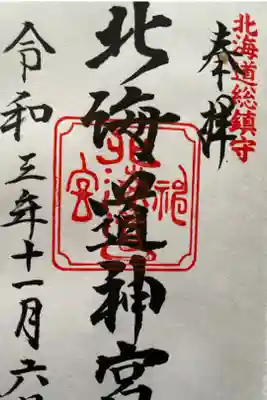 北海道総鎮守
奉拝
北海道神宮
令和三年十一月六日